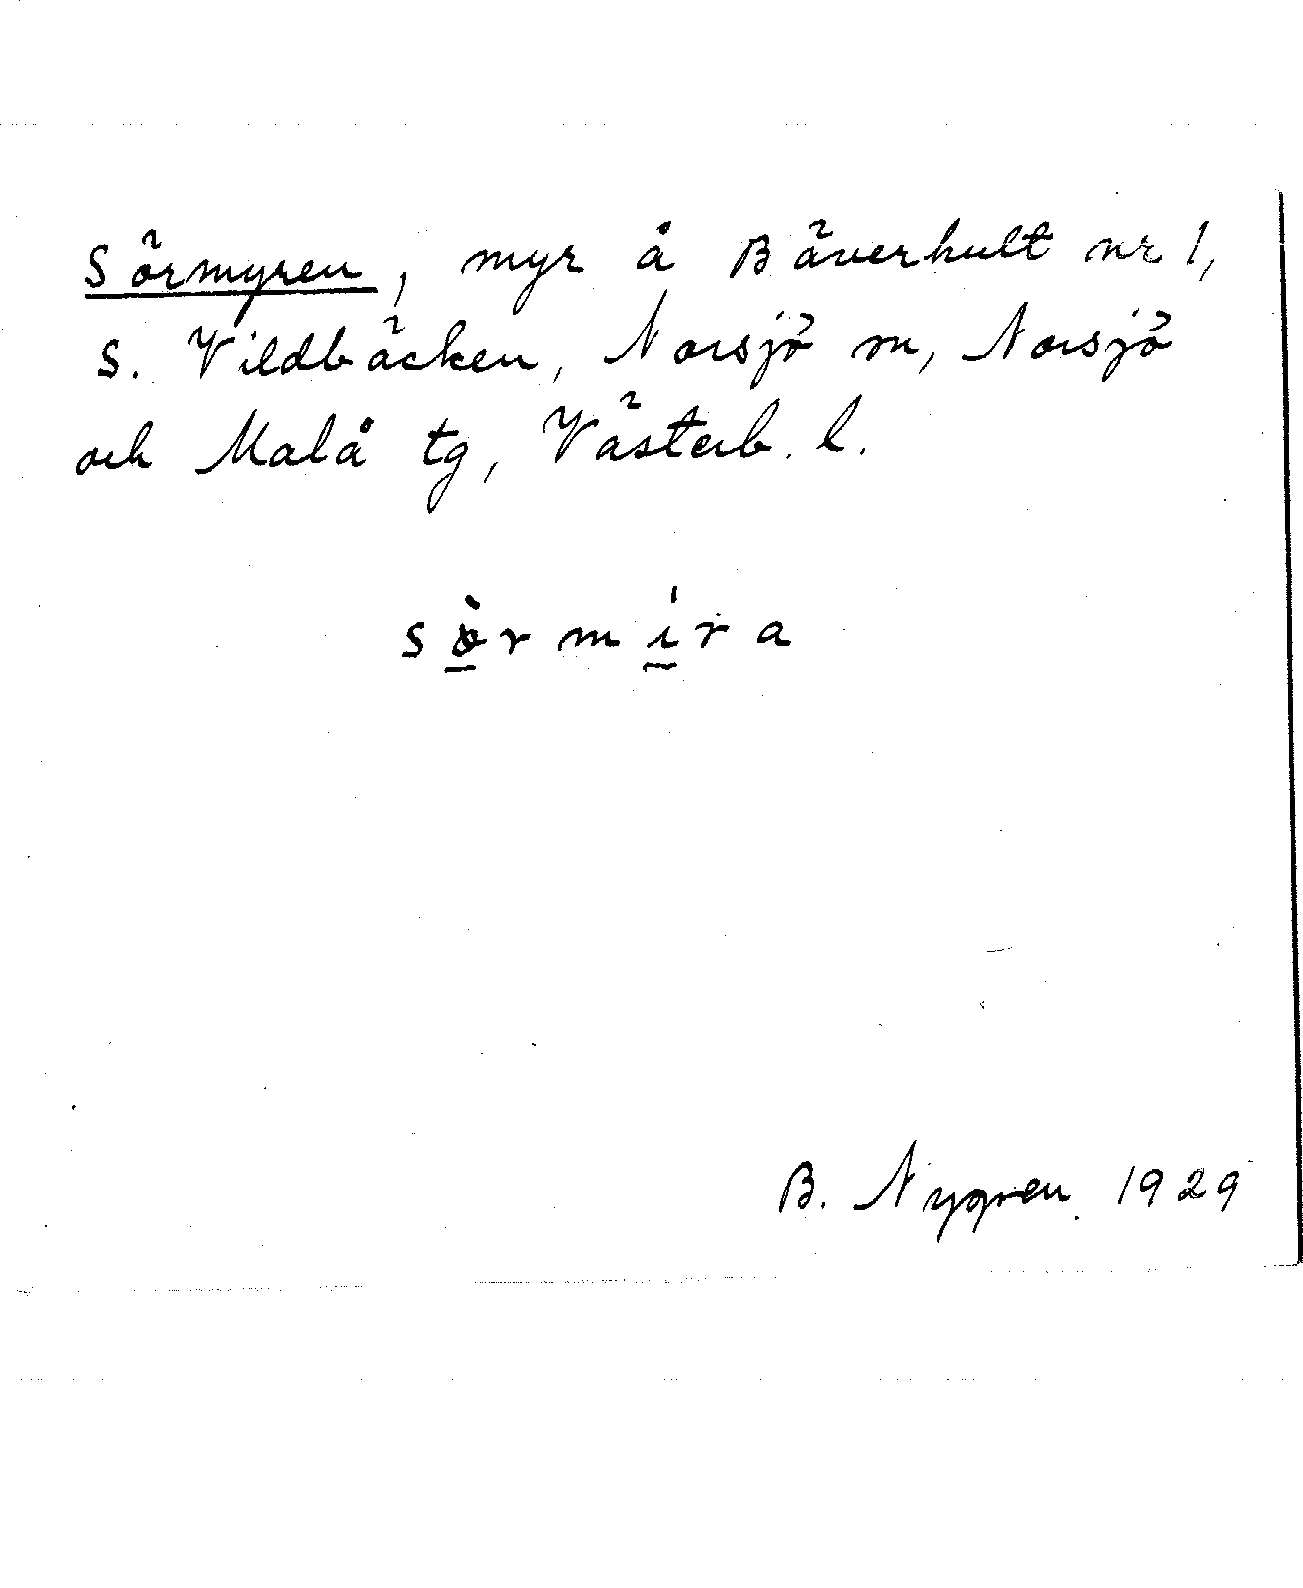 Sörmyren, myr å Bäverhult nr 1,
S. Vildbäcken, Norsjö sn, Norsjö
och Malå tg, Västerb. l.
sòrmíra
B. Nygren. 1929